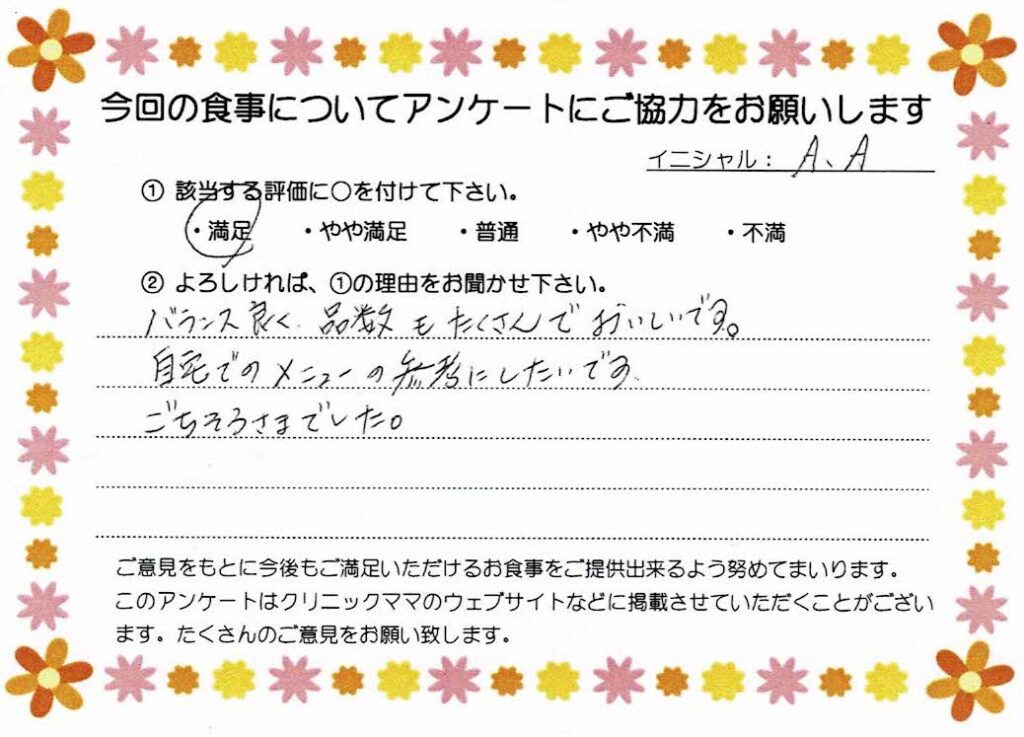 今回の食事についてアンケートにご協力をお願いします
イニシャル： A、A
① 該当する評価に〇を付けて下さい。
・満足 ・やや満足 ・普通 ・やや不満 ・不満
② よろしければ、①の理由をお聞かせ下さい。
バランス良く、品数もたくさんでおいしいです。
自宅でのメニューの参考にしたいです。
ごちそうさまでした。
ご意見をもとに今後もご満足いただけるお食事をご提供出来るよう努めてまいります。
このアンケートはクリニックママのウェブサイトなどに掲載させていただくことがござい
ます。たくさんのご意見をお願い致します。